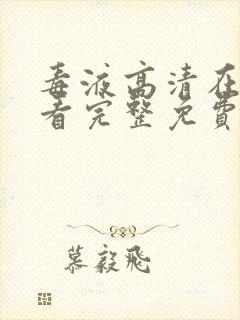 毒液高清在
看完整免費
慕毅飛